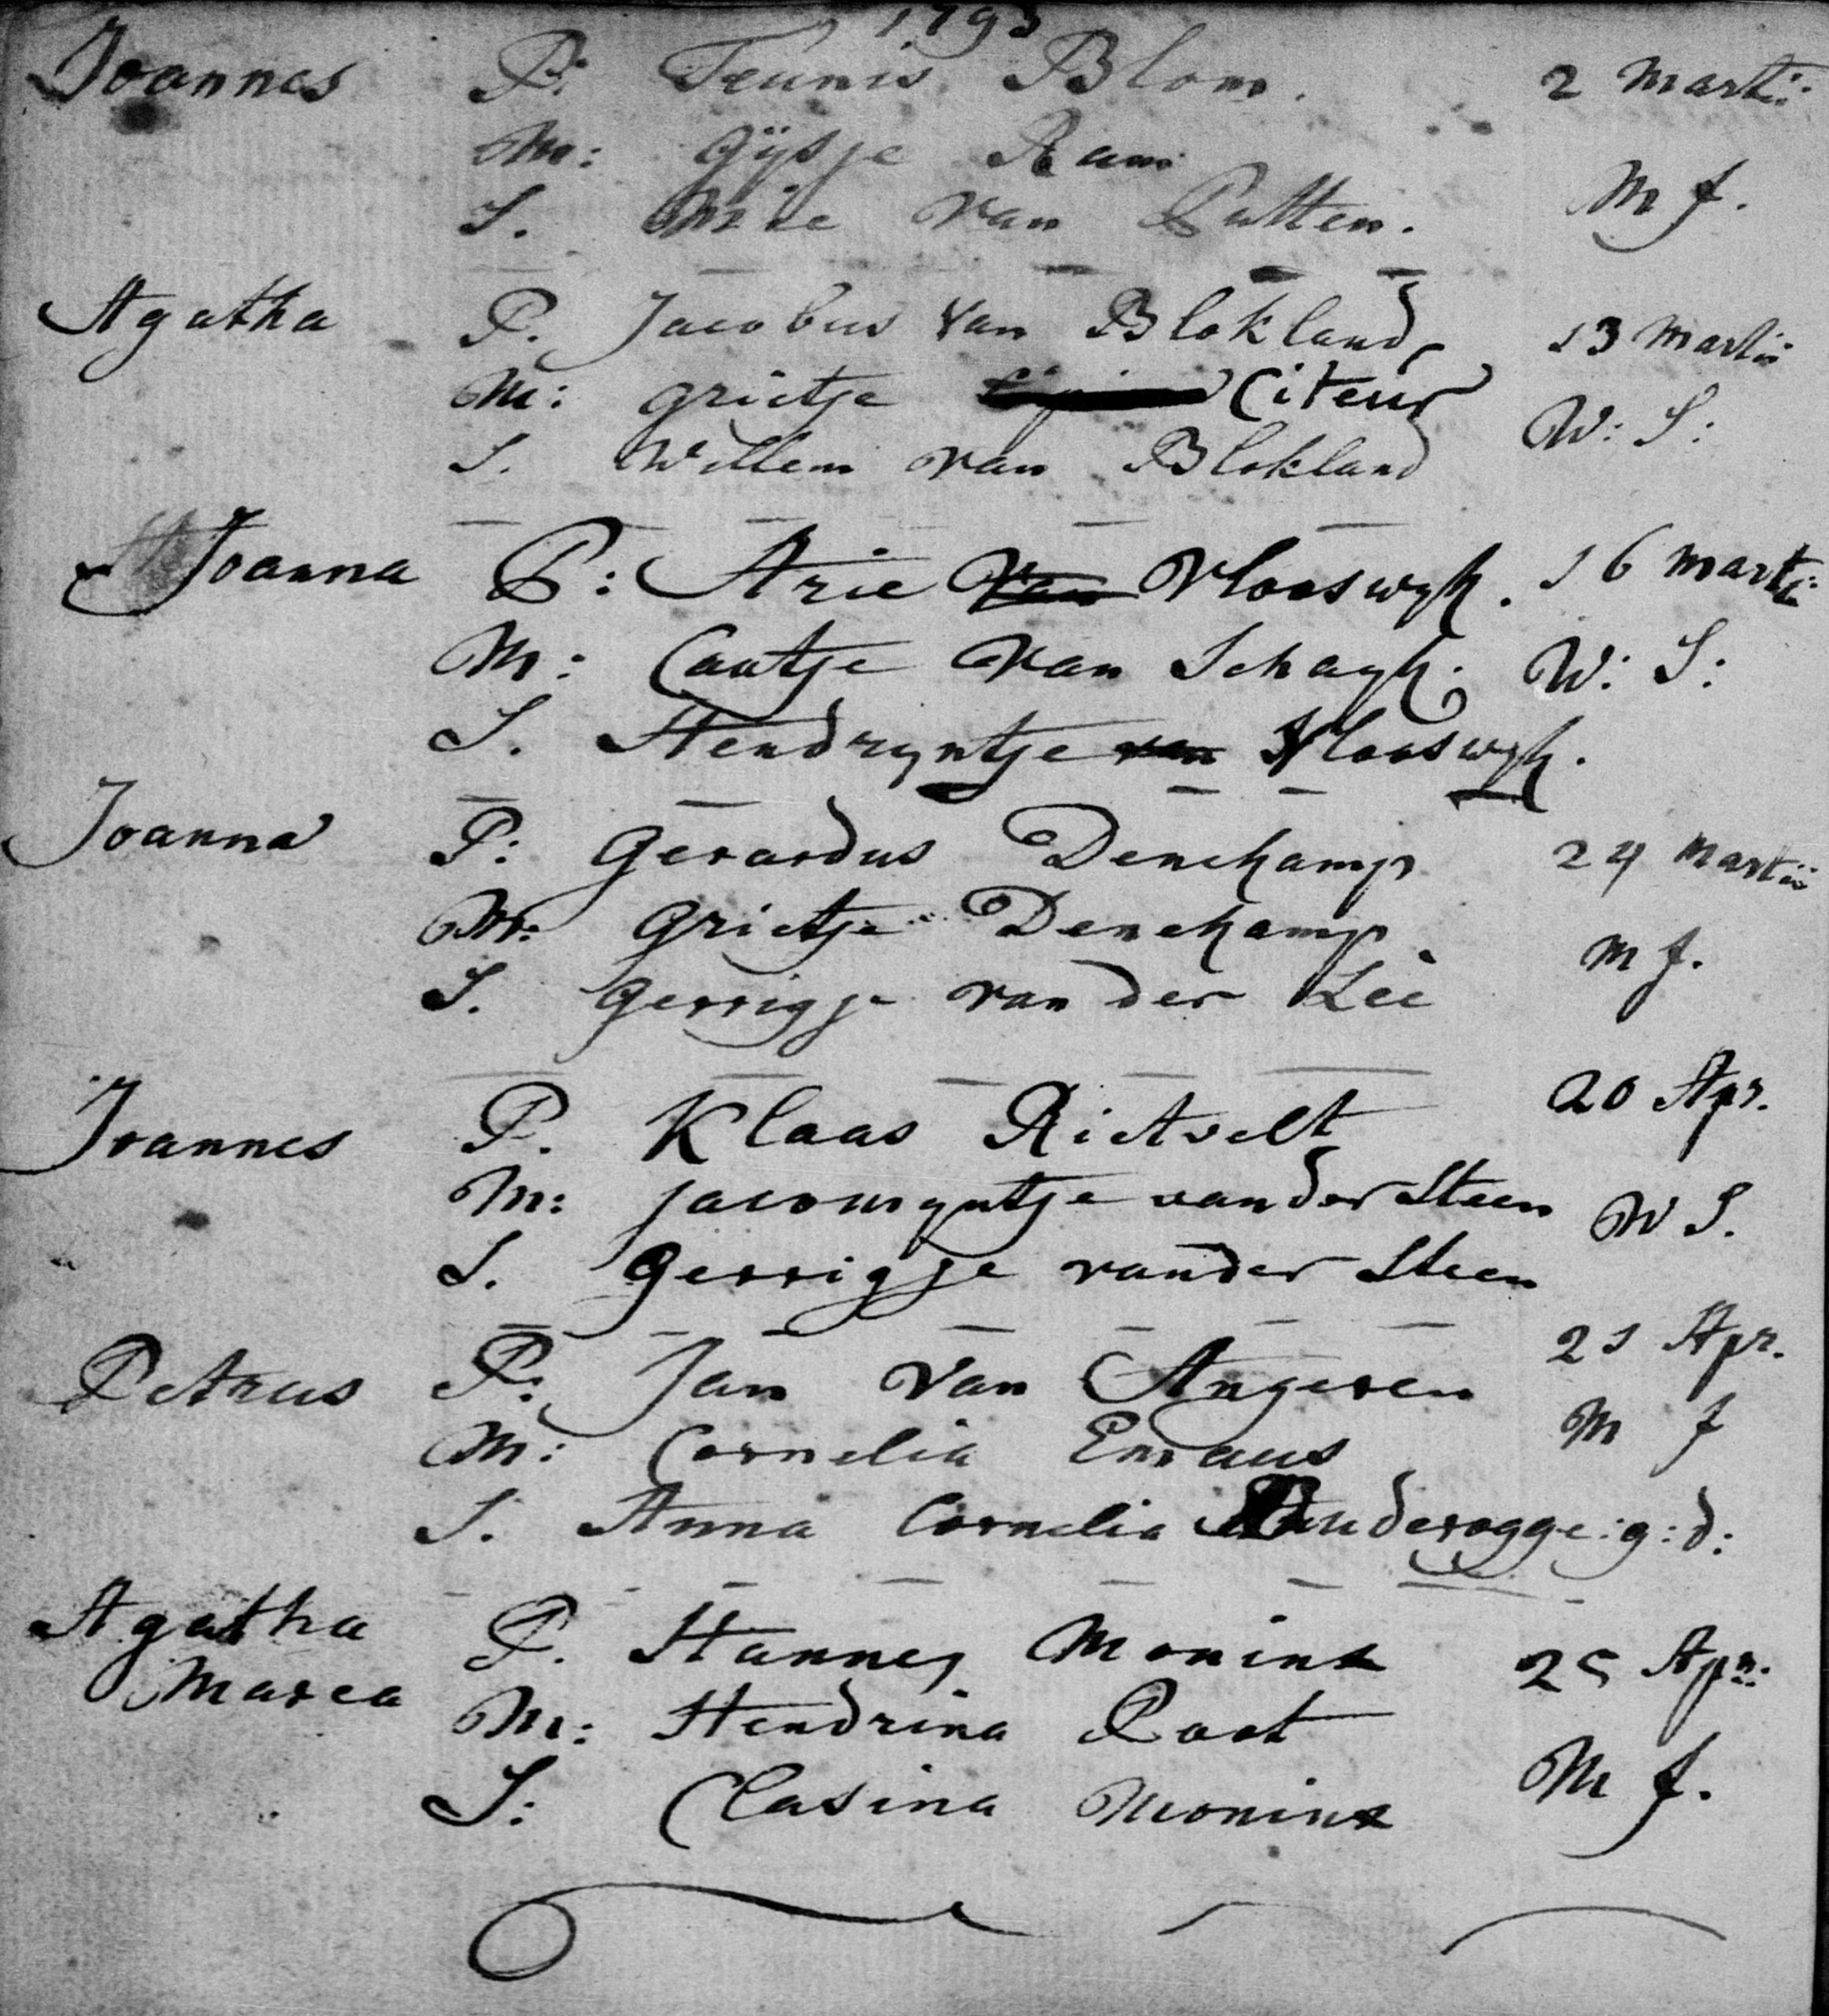 1793
Joannes P: Teunis Blom. 2 Martii
M: Gijsje Ram
S. Mie van Putten. M f.
Agatha P. Jacobus van Blokland 13 Martii
M: Grietje Citeur
S. Willem van Blokland W: S:
Joanna P: Arie van Vlooswyk. 16 Martii
M: Caatje van Schayk. W: S:
S. Hendryntje van Vlooswyk.
Joanna P: Gerardus Denekamp 24 Martii
M: Grietje Denekamp
S. Gerrigje van der Leè M f.
Joannes P. Klaas Rietvelt 20 Apr.
M: Jacomyntje vander Steen W S.
S. Gerrigje vander Steen
Petrus P: Jan van Angeren 21 Apr.
M: Cornelia Emaus M f
S. Anna Cornelia :g:d:
Agatha P. Hannes Monink 25 Apr:
Marea M: Hendrina Poot
S: Clasina Monink M f.